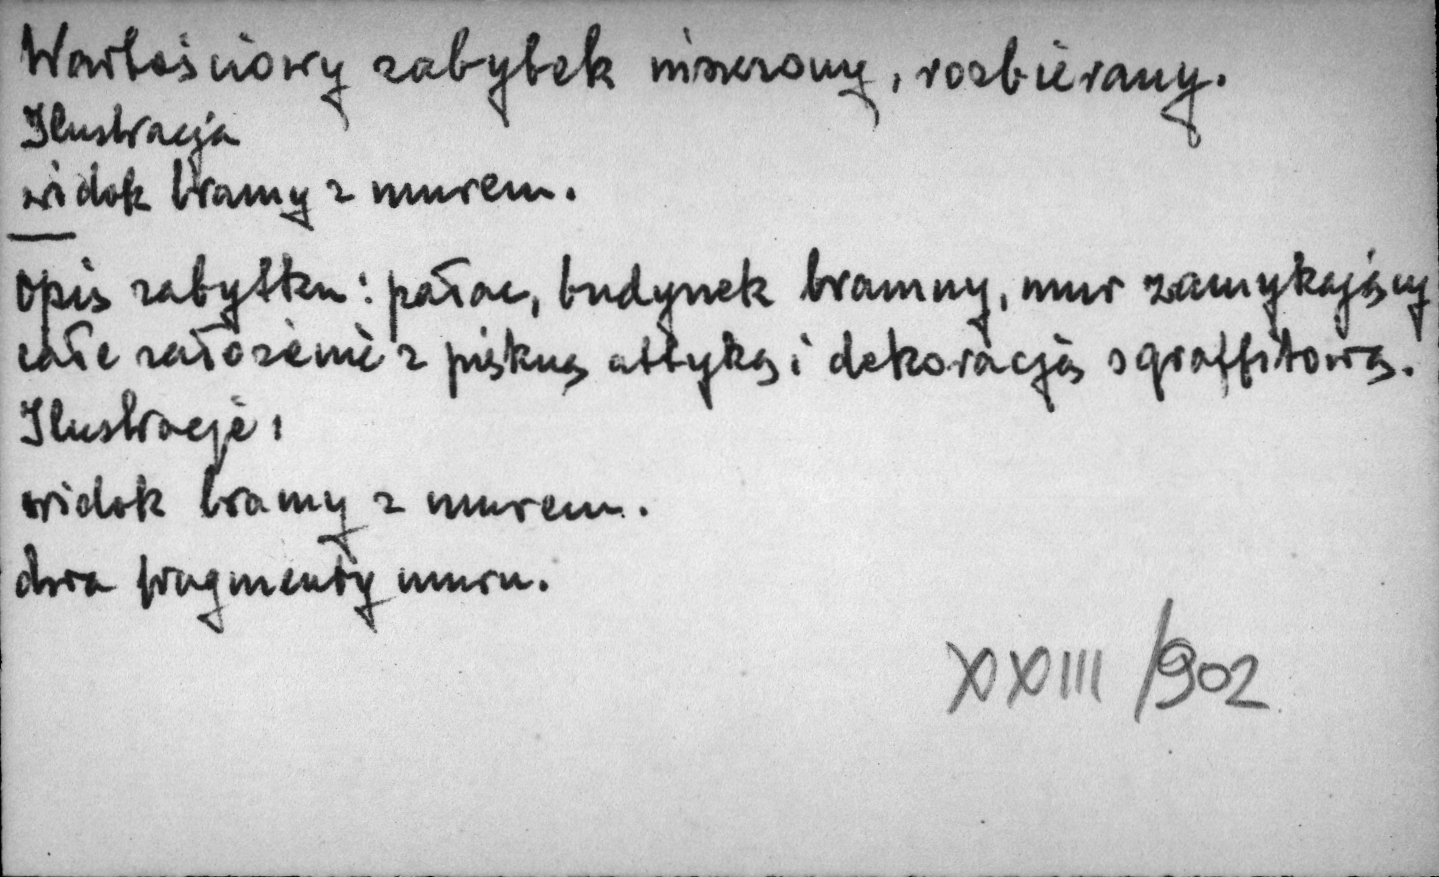 Wartościowy zabytek niszczony, rozbierany.
Ilustracja
widok bramy z murem.
Opis zabytku: pałac, budynek bramny, mur zamykający
całe założenie z piękną attyką i dekoracją sgraffitową.
Ilustracje:
widok bramy z murem.
dwa fragmenty muru.
XXIII/902